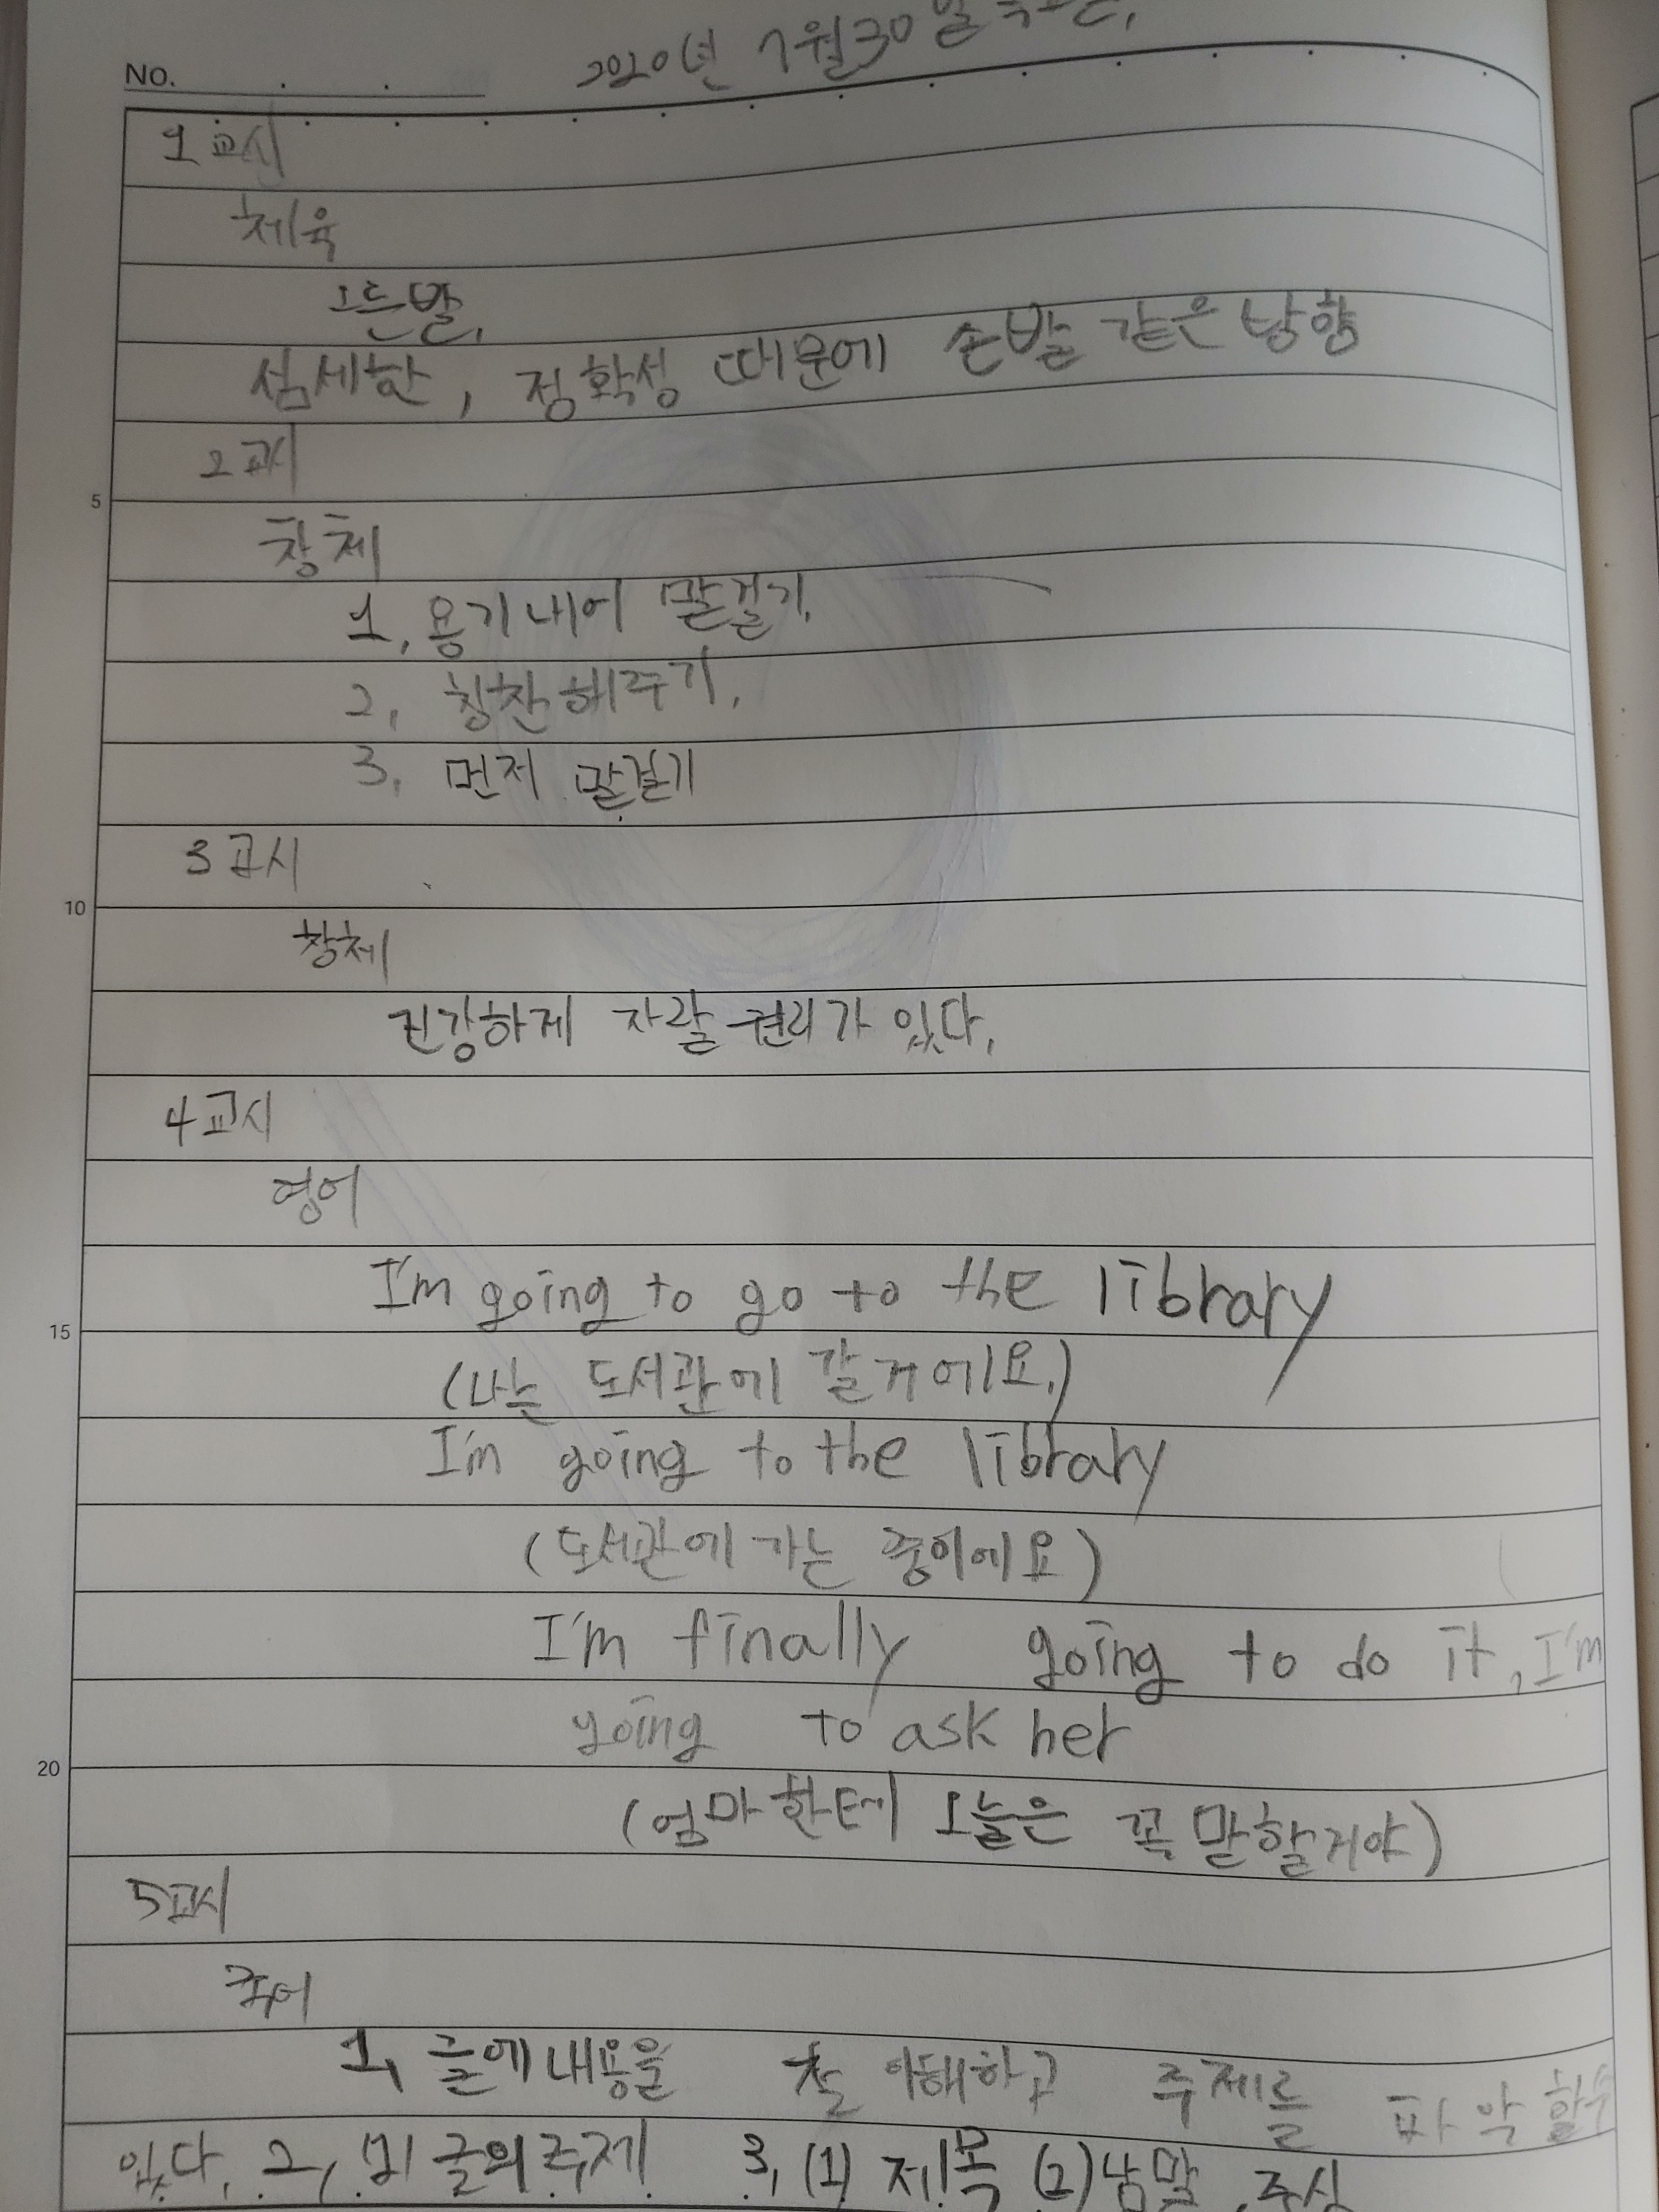 NO.
2020년 7월 30일
1교시
체육
오른발,
섬세한, 정확성 때문에 손발 같은 방향
2교시
창체
1, 용기내어 말걸기,
2, 칭찬해주기,
3, 먼저 말걸기
3교시
창체
건강하게 자랄 권리가 있다,
4교시
영어
I'm going to go to the library
15
(나는 도서관에 갈거에요.)
I'm going to the library
(도서관에 가는 중이에요)
I'm finally going to do it, I'm
going to ask her
20
(엄마한테 오늘은 꼭 말할거야)
5교시
국어
1, 글에 내용을 이해하고 주제를 파악할수
있다, 2, 글의 주제 3, (1) 제목 (2) 낱말, 중심
5
10